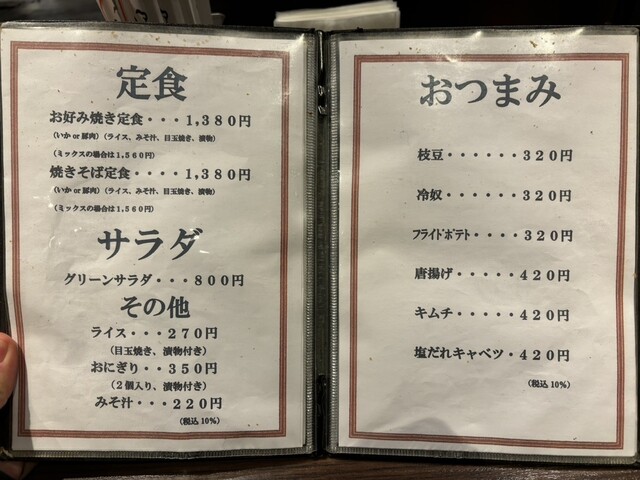 定食
お好み焼き定食・・・1,380円
(いか or 豚肉) (ライス、みそ汁、目玉焼き、漬物)
(ミックスの場合は1,560円)
焼きそば定食・・・1,380円
(いか or 豚肉) (ライス、みそ汁、目玉焼き、漬物)
(ミックスの場合は1,560円)
サラダ
グリーンサラダ・・・800円
その他
ライス・・・270円
(目玉焼き、漬物付き)
おにぎり・・350円
(2個入り、漬物付き)
みそ汁・・・220円
(税込10%)
おつまみ
枝豆・・・・・・320円
冷奴・・・・・・320円
フライドポテト・・・・320円
唐揚げ・・・・・420円
キムチ・・・・・420円
塩だれキャベツ・420円
(税込10%)